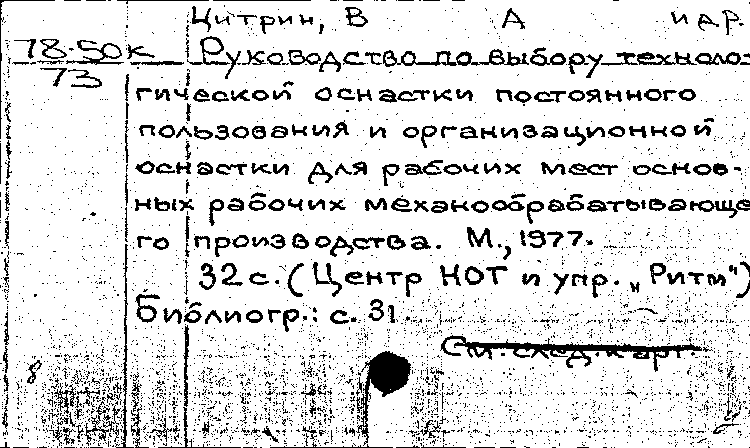 Цитрин, В А и др.
78-50к Руководство по выбору техноло-
73
гической оснастки постоянного
пользования и организационной
оснастки для рабочих мест основ-
ных рабочих механообрабатывающе
го производства. М., 1977.
32 с. (Центр НОТ и упр. „Ритм")
Библиогр.: с. 31.
См. след. карт.
8